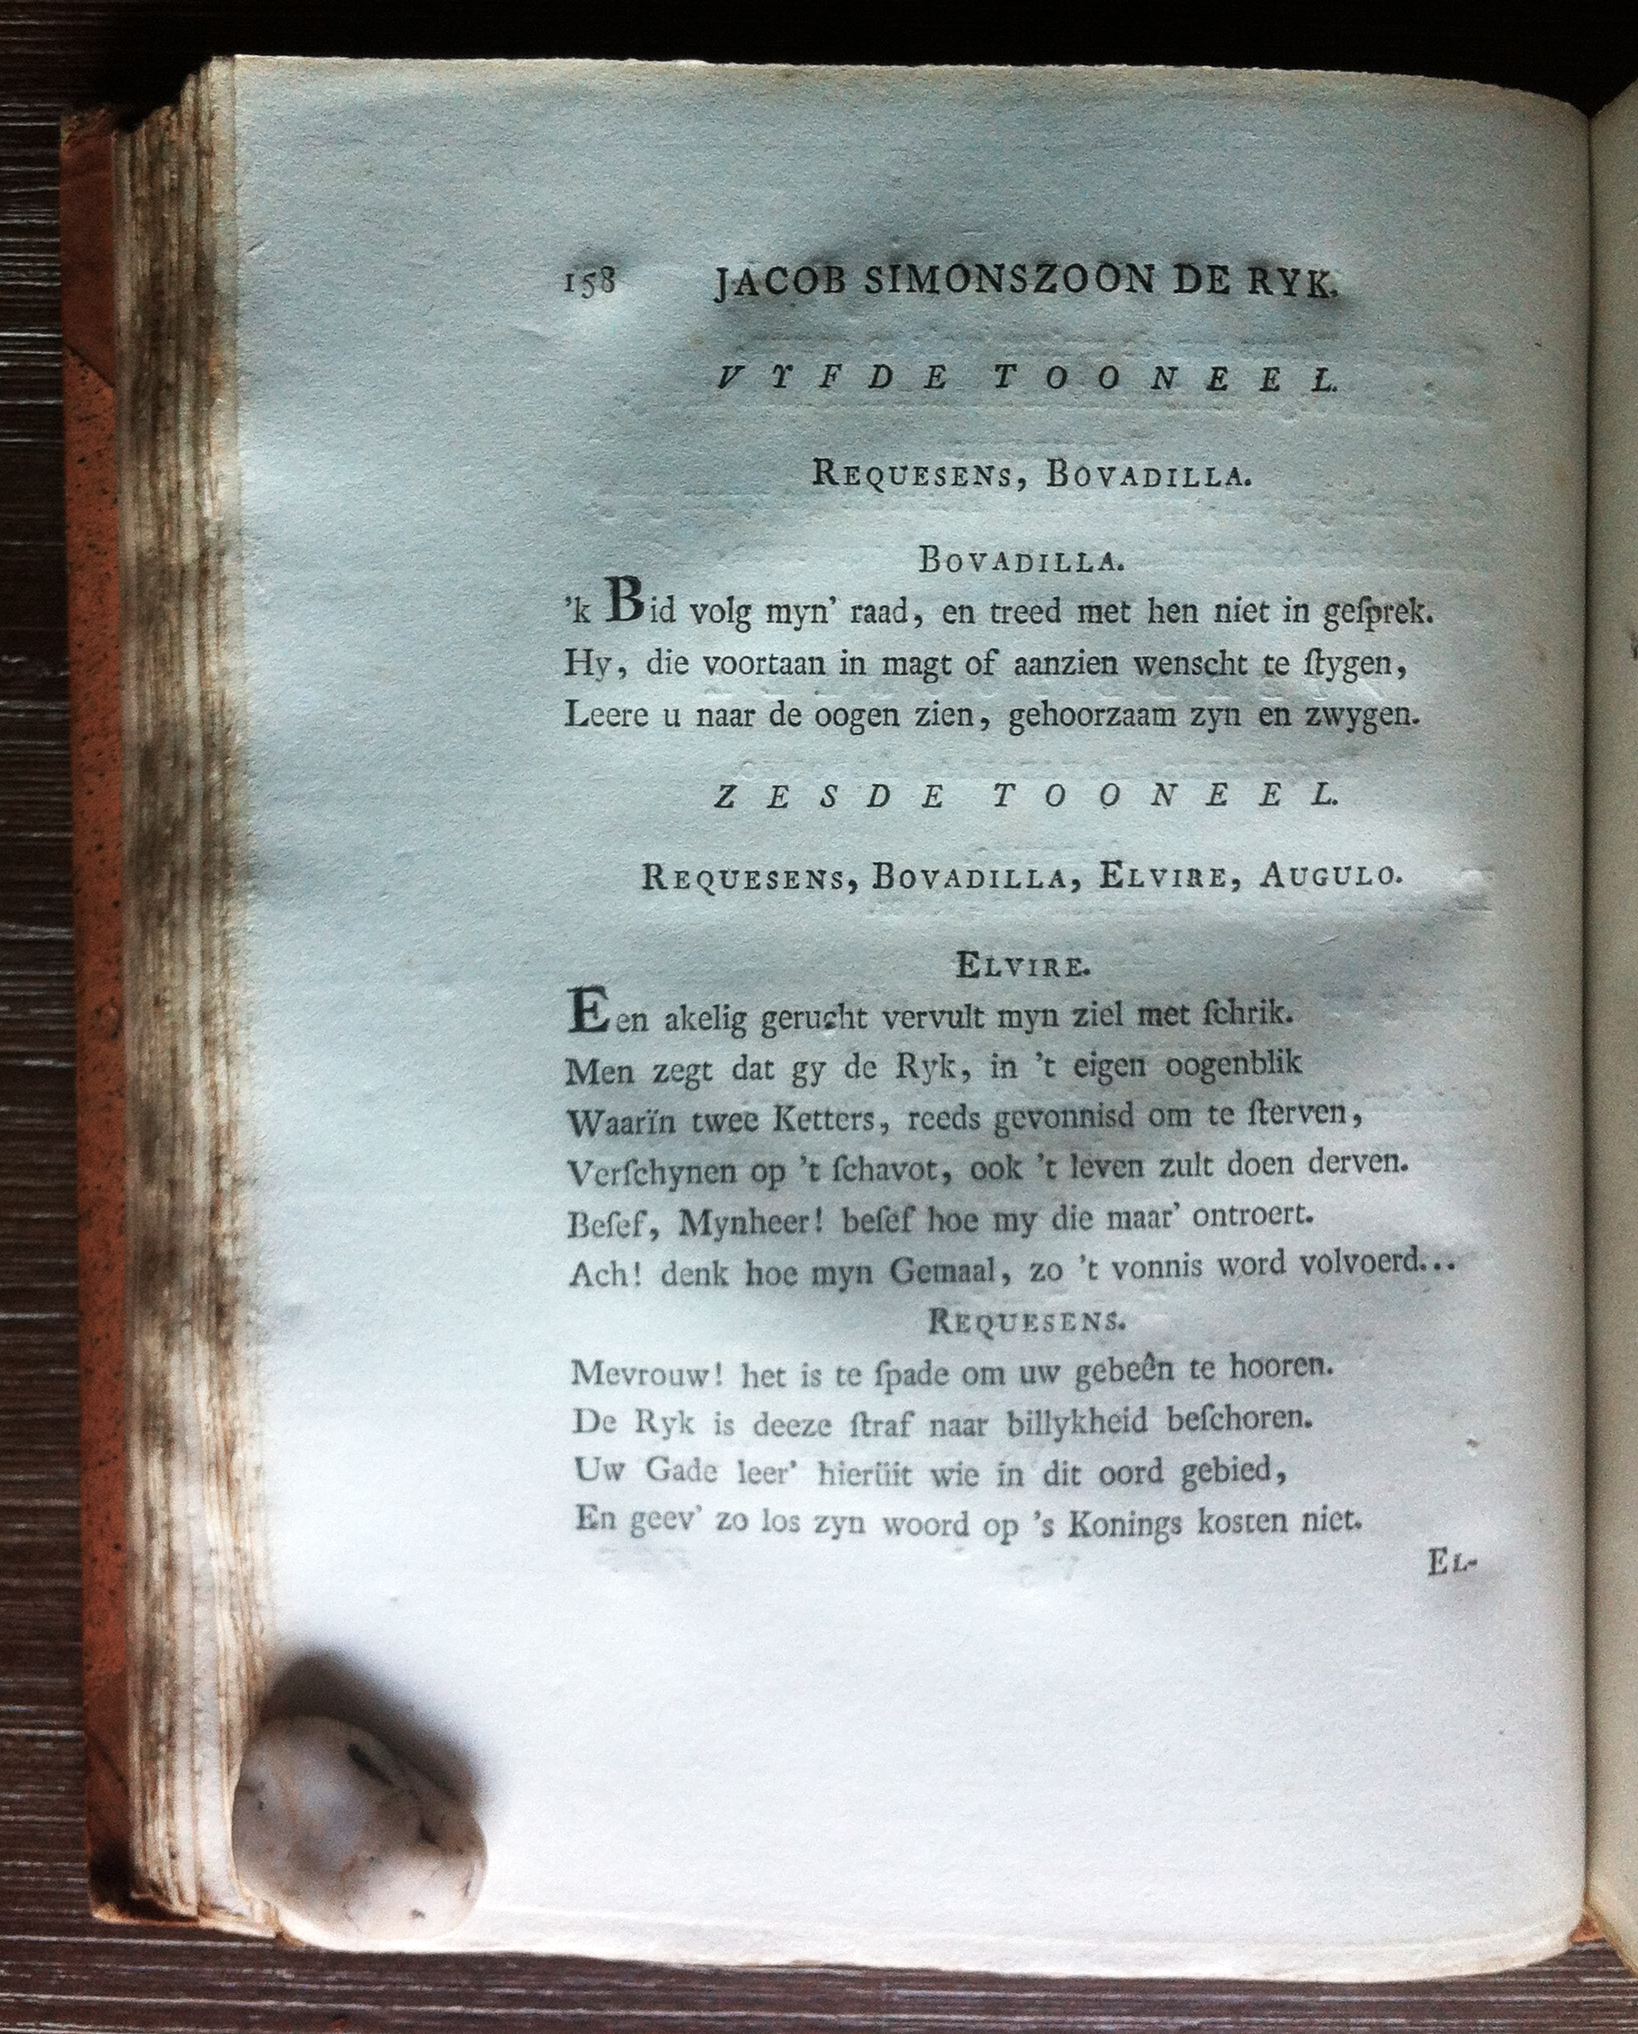 158 JACOB SIMONSZOON DE RYK.
VYFDE TOONEEL.
REQUESENS, BOVADILLA.
BOVADILLA.
'k Bid volg myn' raad, en treed met hen niet in geſprek.
Hy, die voortaan in magt of aanzien wenscht te ſtygen,
Leere u naar de oogen zien, gehoorzaam zyn en zwygen.
ZESDE TOONEEL.
REQUESENS, BOVADILLA, ELVIRE, AUGULO.
ELVIRE.
Een akelig gerucht vervult myn ziel met ſchrik.
Men zegt dat gy de Ryk, in 't eigen oogenblik
Waarïn twee Ketters, reeds gevonnisd om te ſterven,
Verſchynen op 't ſchavot, ook 't leven zult doen derven.
Beſef, Mynheer! beſef hoe my die maar' ontroert.
Ach! denk hoe myn Gemaal, zo 't vonnis word volvoerd...
REQUESENS.
Mevrouw! het is te ſpade om uw gebeên te hooren.
De Ryk is deeze ſtraf naar billykheid beſchoren.
Uw Gade leer' hierüit wie in dit oord gebied,
En geev' zo los zyn woord op 's Konings kosten niet.
EL-